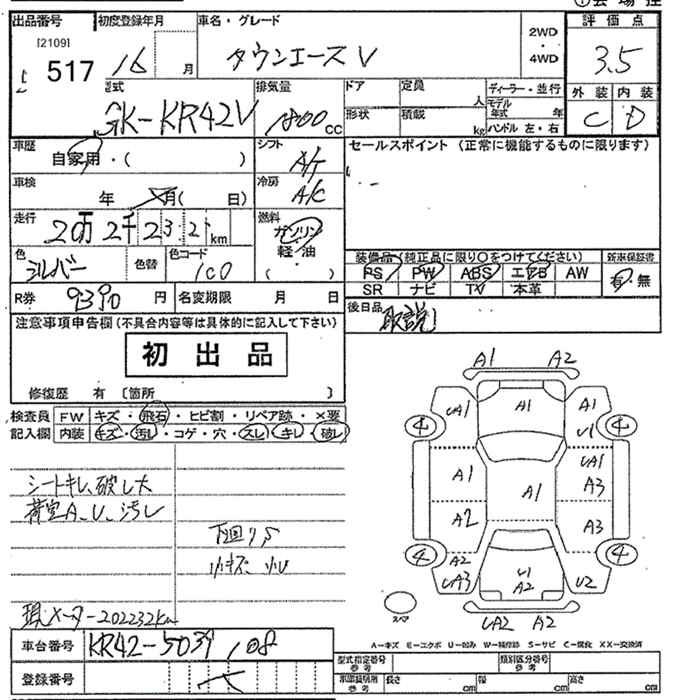 出品番号 初度登録年月 車名・グレード 2WD・4WD 評価点
[2109]
517 16 月 タウンエースV 3.5
型式 排気量 ドア 定員 人 ディーラー・並行 外装 内装
GK-KR42V 1800cc 形状 積載 kg モデル年式 年 ハンドル 左・右 C D
車歴 シフト セールスポイント (正常に機能するものに限ります)
自家用・( ) A/T
車検 年 月( 日) 冷房 A/C
走行 20万2千232km 燃料 ガソリン
軽・油
( )
色 シルバー 色替 色コード 1C0
装備品 (純正品に限り○をつけてください) 新車保証書
PS PW ABS エアB AW 有・無
SR ナビ TV 本革
R券 9390円 名変期限 月 日
後日品 取説
注意事項申告欄(不具合内容等は具体的に記入して下さい)
初出品
修復歴 有 〔箇所 〕
検査員 FW キズ・飛石・ヒビ割・リペア跡・×要
記入欄 内装 キズ・汚れ・コゲ・穴・スレ・キレ・破レ
シートキレ、破レ大
荷室A、U、汚レ
下回りサ
小キズ、小U
現メーター202232km
A1 A2
UA1 A1 A1
4 U1 4
A1 A1 UA1
A3
A2 A3
4 A2 4
UA3 U1 A2 U2
スペア UA2 A2
A-キズ E-エクボ U-凹み W-補修跡 S-サビ C-腐蝕 XX-交換済
車台番号 KR42-5039108
登録番号
型式指定番号 参考 類別区分番号 参考
参考 長さ cm 幅 cm 高さ cm